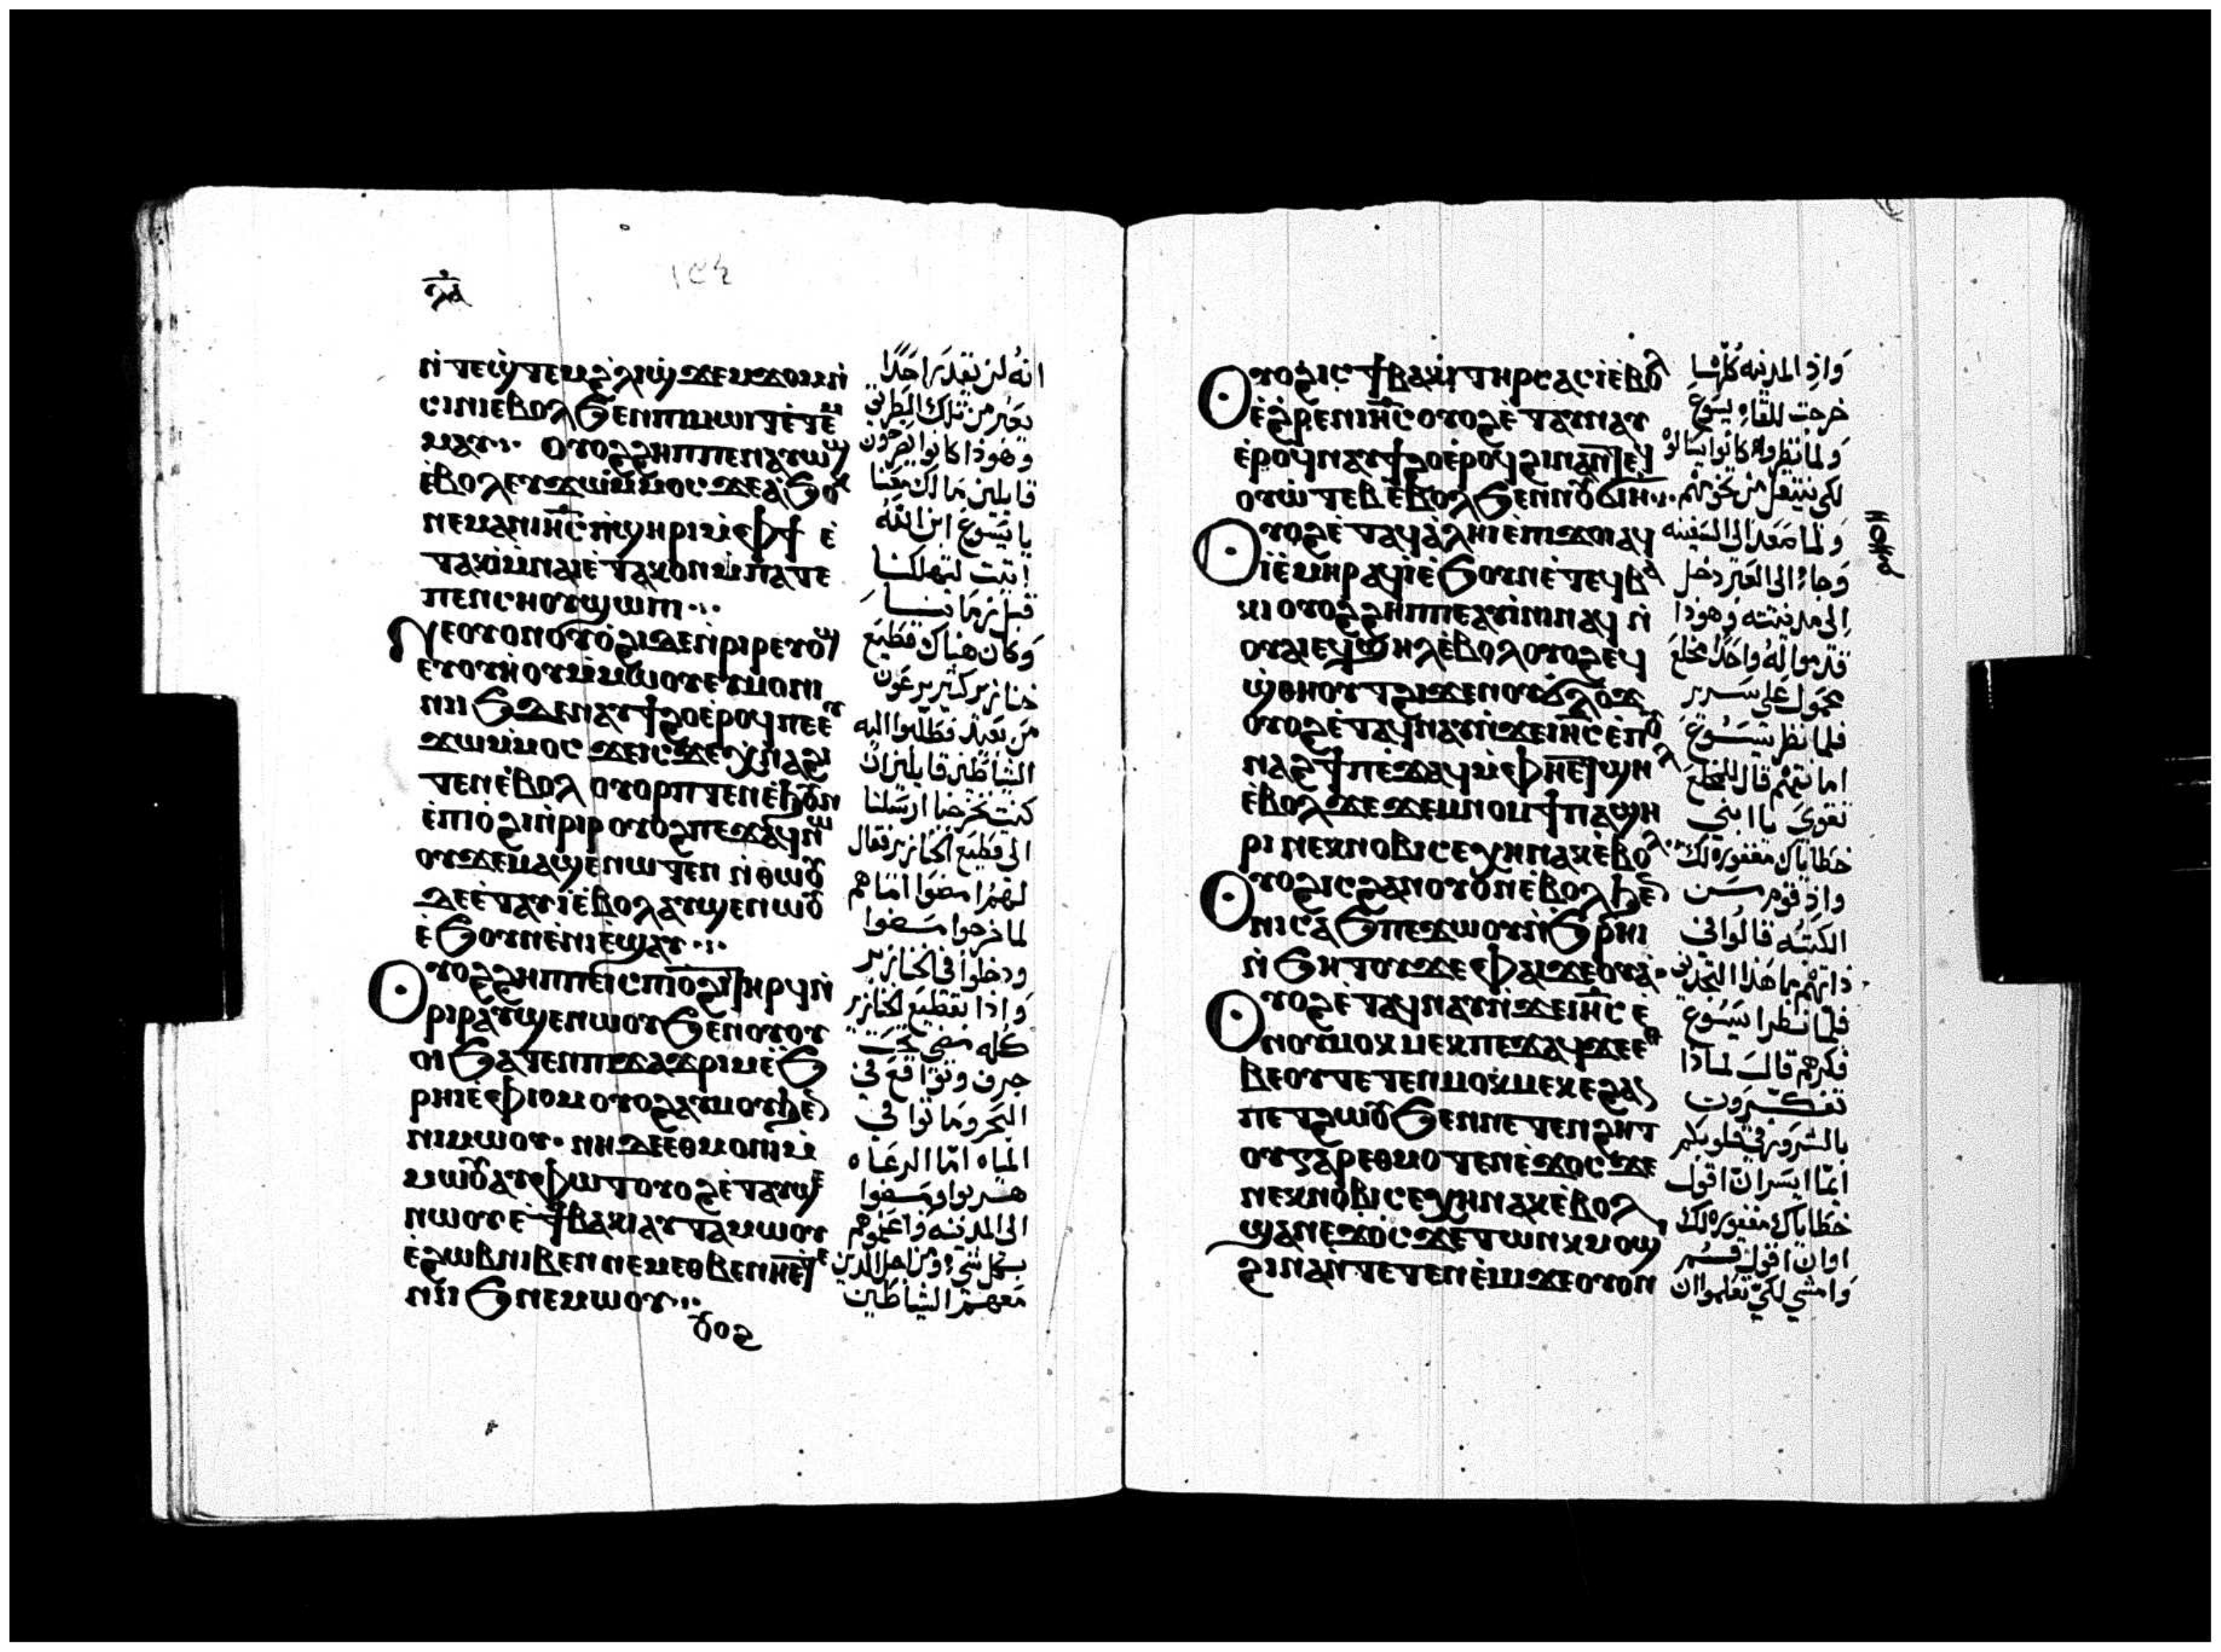 ⲛ̀ⲧⲉϣ̀ⲧⲉⲙϩ̀ⲗⲓϣ̀ϫⲉⲙϫⲟⲙⲛ̀
ⲥⲓⲛⲓⲉ̀ⲃⲟⲗϧⲉⲛⲡⲓⲙⲱⲓⲧⲉ̀ⲧⲉ̀
ⲙⲁⲩ⁘ ⲟⲩⲟϩϩⲏⲡⲡⲉⲛⲁⲩⲱϣ
ⲉ̀ⲃⲟⲗⲉⲩϫⲱⲙ̀ⲙⲟⲥϫⲉⲁ̀ϧⲟⲕ
ⲛⲉⲙⲁⲛⲓⲏ̅ⲥⲡ̀ϣⲏⲣⲓⲙ̀ⲫϯ ⲉ̀
ⲧⲁⲕⲓ̀ⲙ̀ⲛⲁⲓⲉ̀ⲧⲁⲕⲟⲛⲙ̀ⲡⲁⲧⲉ
ⲡⲉⲛⲥⲏⲟⲩϣⲱⲡⲓ⁘
ⲛⲉⲟⲩⲟⲛⲟⲩⲟ̀ϩⲓⲇⲉⲛ̀ⲣⲓⲣⲉⲩⲟⲩ
ⲉⲩⲟⲩⲏ̀ⲟⲩⲙ̀ⲙⲱⲟⲩⲉⲩⲙⲟⲛⲓ
ⲛⲓⲓϧⲇⲉⲛⲁⲩϯϩⲟⲉ̀ⲣⲟϥⲡⲉⲉⲩ
ϫⲱⲙ̀ⲙⲟⲥ ϫⲉⲓⲥϫⲉⲭ̀ⲛⲁϩⲓ
ⲧⲉⲛⲉ̀ⲃⲟⲗ ⲟⲩⲟⲣⲡⲧⲉⲛⲉ̀ϧⲟⲩⲛ
ⲉ̀ⲡⲓⲟ̀ϩⲓⲛ̀ⲣⲓⲣ ⲟⲩⲟϩⲡⲉϫⲁϥⲛⲱ
ⲟⲩϫⲉⲙⲁϣⲉ̀ⲛⲱⲧⲉⲛ ⲛ̀ⲑⲱⲟⲩ
ⲇⲉⲉ̀ⲧⲁⲩⲓ̀ⲉ̀ⲃⲟⲗⲁⲩϣⲉⲛⲱⲟⲩ
ⲉ̀ϧⲟⲩⲛⲉ̀ⲛⲓⲉ̀ϣⲁⲩ⁘
ⲟⲩⲟϩϩⲏⲡⲡⲉⲓⲥⲡⲓⲟ̀ϩⲓⲧⲏⲣϥⲛ̀
ⲣⲓⲣⲁⲩϣⲉⲛⲱⲟⲩϧⲉⲛⲟⲩⲟⲩ
ⲟⲓϧⲁⲧⲉⲛⲡⲓϫⲁϫⲣⲓⲙⲉ̀ϧ
ⲣⲏⲓⲉ̀ⲫⲓⲟⲙⲟⲩⲟϩⲁⲩⲙⲟⲩϧⲉⲛ
ⲛⲓⲙⲱⲟⲩ· ⲛⲏⲇⲉⲉⲑⲙⲟⲛⲓⲙ̀
ⲙⲱⲟⲩⲁⲩⲫⲱⲧⲟⲩⲟϩⲉ̀ⲧⲁⲩϣⲉ
ⲛⲱⲟⲩⲉ̀ϯⲃⲁⲕⲓⲁⲩⲧⲁⲙⲱⲟⲩ
ⲉ̀ϩⲱⲃⲛⲓⲃⲉⲛⲛⲉⲙⲉⲑⲃⲉⲛⲏⲉⲧⲉ
ⲛⲓⲓϧⲛⲉⲙⲱⲟⲩ⁘
ⲟⲩⲟϩ
انه لن يقدر احدًا
يعبر من تلك الطريق
وهوذا كانوا يصرخون
قايلين ما لك معنا
يا يسوع ابن الله
اتيت لتهلكنا
قبل زماننا
وكان هناك قطيع
خنازير كثير يرعون
من بعيد فطلبوا اليه
الشياطين قايلين ان
كنت تخرجنا ارسلنا
الى قطيع الخنازير فقال
لهم امضوا اما هم
لما خرجوا مضوا
ودخلوا في الخنازير
واذا بقطيع الخنازير
كله مضى
جرف وتواقع في
البحر وماتوا في
المياه اما الرعاه
هربوا ومضوا
الى المدينه واعلموهم
بكل شي ومن اجل الذين
معهم الشياطين
ⲟⲩⲟϩⲓⲥϯⲃⲁⲕⲓⲧⲏⲣⲥⲁⲥⲓ̀ⲉ̀ⲃⲟⲗ
ⲉ̀ϩ̀ⲣⲉⲛⲓⲏ̅ⲥⲟⲩⲟϩⲉ̀ⲧⲁⲩⲛⲁⲩ
ⲉ̀ⲣⲟϥⲛⲁⲩϯϩⲟⲉ̀ⲣⲟϥϩⲓⲛⲁⲛ̀ⲧⲉϥ
ⲟⲩⲱ̀ⲧⲉⲃⲉ̀ⲃⲟⲗϧⲉⲛⲛⲟⲩϭⲓⲏ⁘
ⲟⲩⲟϩⲉ̀ⲧⲁϥⲁ̀ⲗⲏⲓⲉ̀ⲡⲓϫⲟⲓⲁϥ
ⲓ̀ⲉ̀ⲙⲏⲣⲁϥⲓ̀ⲉ̀ϧⲟⲩⲛⲉ̀ⲧⲉϥⲃⲁ
ⲕⲓ ⲟⲩⲟϩϩⲏⲡⲡⲉⲁⲩⲓ̀ⲛⲓⲛⲁϥ ⲛ̀
ⲟⲩⲁⲓⲉϥϣⲏⲗⲉ̀ⲃⲟⲗⲟⲩⲟϩⲉϥ
ϣ̀ⲑⲏⲟⲩⲧϩⲓϫⲉⲛⲟⲩϭ̀ⲗⲟϫ
ⲟⲩⲟϩⲉ̀ⲧⲁϥⲛⲁⲩⲛ̀ϫⲉⲓⲏ̅ⲥⲉ̀ⲡⲟⲩ
ⲛⲁϩϯⲡⲉϫⲁϥⲙ̀ⲫⲏⲉⲧϣⲏⲗ
ⲉ̀ⲃⲟⲗϫⲉϫⲉⲙⲛⲟⲙϯⲡⲁϣⲏ
ⲣⲓ ⲛⲉⲕⲛⲟⲃⲓⲥⲉⲭⲏⲛⲁⲕⲉ̀ⲃⲟⲗ
ⲟⲩⲟϩⲓⲥϩⲁⲛⲟⲩⲟⲛⲉ̀ⲃⲟⲗϧⲉⲛ
ⲛⲓⲥⲁϧⲡⲉϫⲱⲟⲩⲛ̀ϧ̀ⲣⲏⲓ
ⲛ̀ϧⲏⲧⲟⲩϫⲉⲫⲁⲓϫⲉⲟⲩⲁ̀·
ⲟⲩⲟϩⲉ̀ⲧⲁϥⲛⲁⲩⲛ̀ϫⲉⲓⲏ̅ⲥⲉ̀
ⲛⲟⲩⲙⲟⲕⲙⲉⲕⲡⲉϫⲁϥϫⲉⲉⲑ
ⲃⲉⲟⲩⲧⲉⲧⲉⲛⲙⲟⲕⲙⲉⲕⲉϩⲁⲛ
ⲡⲉⲧϩⲱⲟⲩϧⲉⲛⲛⲉⲧⲉⲛϩⲏⲧ
ⲟⲩⲅⲁⲣⲉⲑⲙⲟⲧⲉⲛⲉ̀ϫⲟⲥϫⲉ
ⲛⲉⲕⲛⲟⲃⲓⲥⲉⲭⲏⲛⲁⲕⲉ̀ⲃⲟⲗ
ϣⲁⲛⲉ̀ϫⲟⲥϫⲉⲧⲱⲛⲕⲙⲟϣⲓ
ϩⲓⲛⲁⲛ̀ⲧⲉⲧⲉⲛⲉ̀ⲙⲓϫⲉⲟⲩⲟⲛ
واذ المدينه كلها
خرجت للقاء يسوع
ولما نظروه كانوا يسالوه
لكي ينتقل من تخومهم
ولما صعد الى السفينه
وجاء الى العبر دخل
الى مدينته وهوذا
قدموا له واحدًا مخلع
محمول على سرير
فلما نظر يسوع
امانتهم قال للمخلع
تقوى يا ابني
خطاياك مغفوره لك
واذ قوم من
الكتبه قالوا في
ذاتهم ما هذا التجديف
فلما نظر يسوع
فكرهم قال لماذا
تفكرون
بالشرور في قلوبكم
ايما ايسر ان اقول
خطاياك مغفوره لك
او ان اقول قم
وامشي لكي تعلموا ان